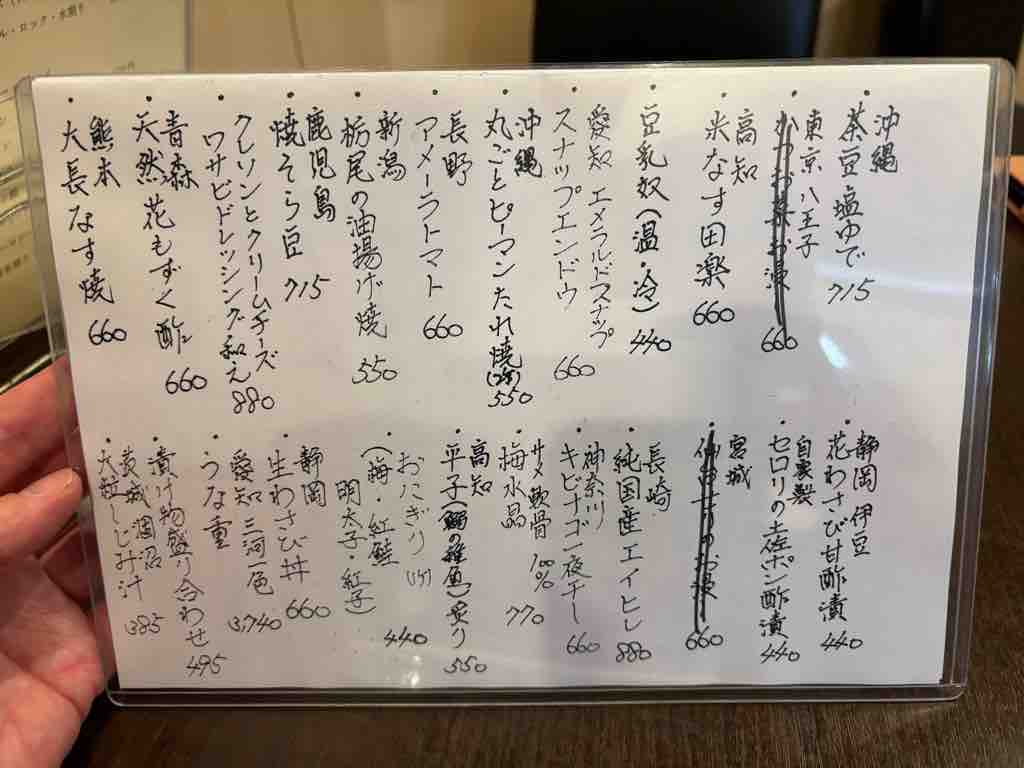 沖縄
茶豆塩ゆで 715
東京八王子
660
高知
米なす田楽 660
豆乳奴(温・冷) 440
愛知 エメラルドスナップ
スナップエンドウ 660
沖縄
丸ごとピーマンたれ焼 550
長野
アメーラトマト 660
新潟
栃尾の油揚げ焼 550
鹿児島
焼そら豆 715
クレソンとクリームチーズ
ワサビドレッシング和え 880
青森
天然花もずく酢 660
熊本
大長なす焼 660
静岡 伊豆
花わさび甘酢漬 440
自家製
セロリの土佐ポン酢漬 440
宮城
660
長崎
純国産エイヒレ 880
神奈川
キビナゴ一夜干し 660
サメ軟骨 100%
梅水晶 770
高知
平子(鰯の稚魚)炙り 550
おにぎり(1ケ)
(梅・紅鮭
明太子・紅子) 440
静岡
生わさび丼 660
愛知 三河一色
うな重 3,740
漬け物盛り合わせ 495
茨城 涸沼
大粒しじみ汁 385